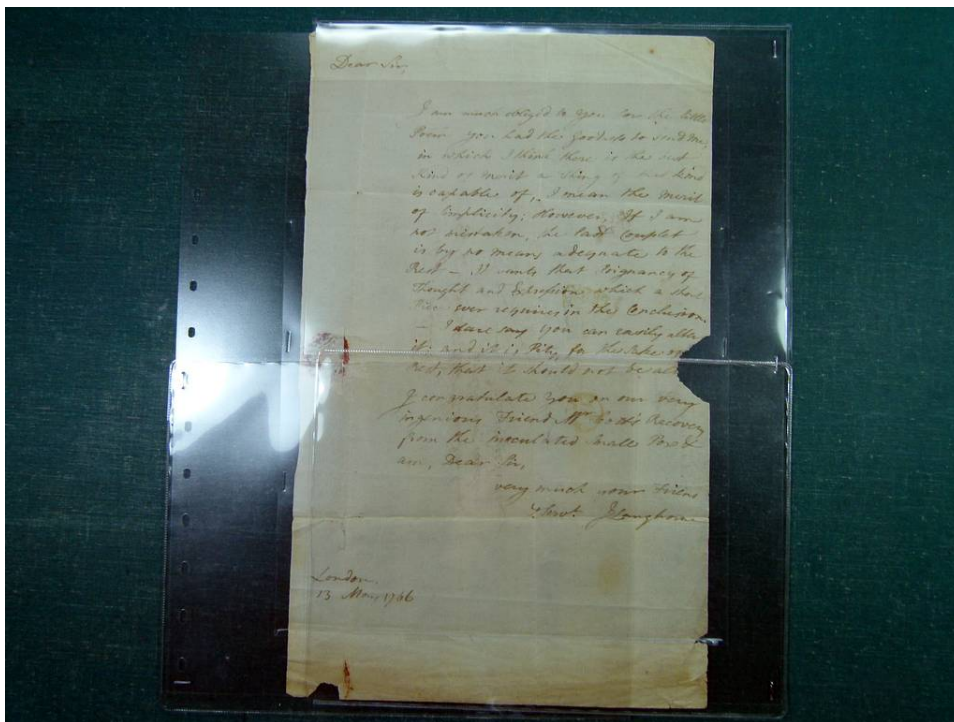 Dear Sir,
I am much oblig'd to you for the little
Poem you had the Goodness to send me,
in which I think there is the best
kind of merit a thing of that kind
is capable of, I mean the Merit
of Simplicity; However, If I am
not mistaken, the last Couplet
is by no means adequate to the
Rest – It wants that Poignancy of
Thought and Expression which a short
Piece ever requires in the Conclusion.
– I dare say you can easily alter
it; and it is Pity, for the Sake
Rest, that it should not be
I congratulate you on our very
ingenious Friend Mr Recovery
from the inoculated Small Pox &
am, Dear Sir,
very much your Friend
& Servt. J Langhorne
London.
13 1766